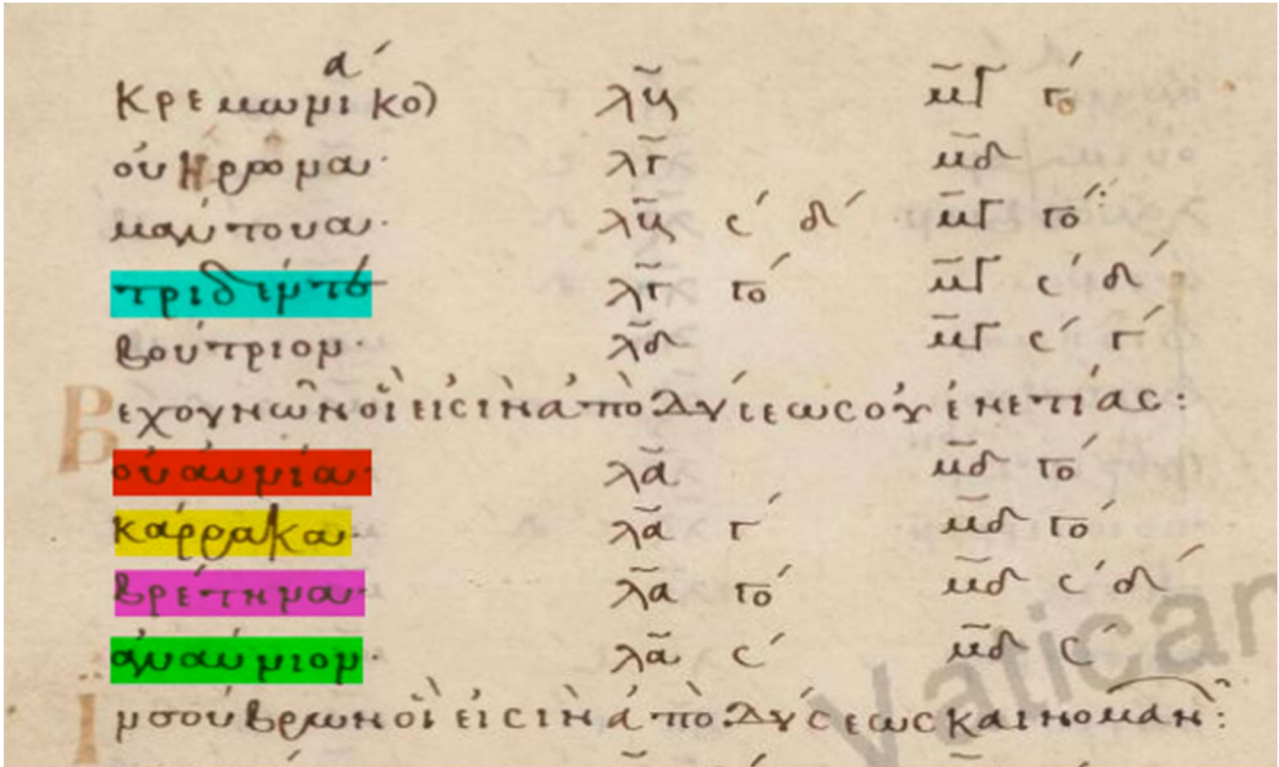 κρεμωνα κο) λβ μγ γο´
οὐηρωνα· λγ μδ
μαντουα· λβ ς´ δ´ μγ γο´:
τριδέντο λγ γο´ μγ ς´ δ´
βούτριον· λδ μγ ς´ γ´
Βεχουνῶν οἵ εἰσὶν ἀπὸ δύσεως οὐενετίας:
οὐαυνία· λα μδ γο´
κάρρακα· λα γ´ μδ γο´
βρέτηνα· λα γο´ μδ ς´ δ´
ἀναύνιον· λα ς´ μδ ς´
Ϊνσούβρων οἵ εἰσὶν ἀπὸ δύσεως καινομαν:
Vatican